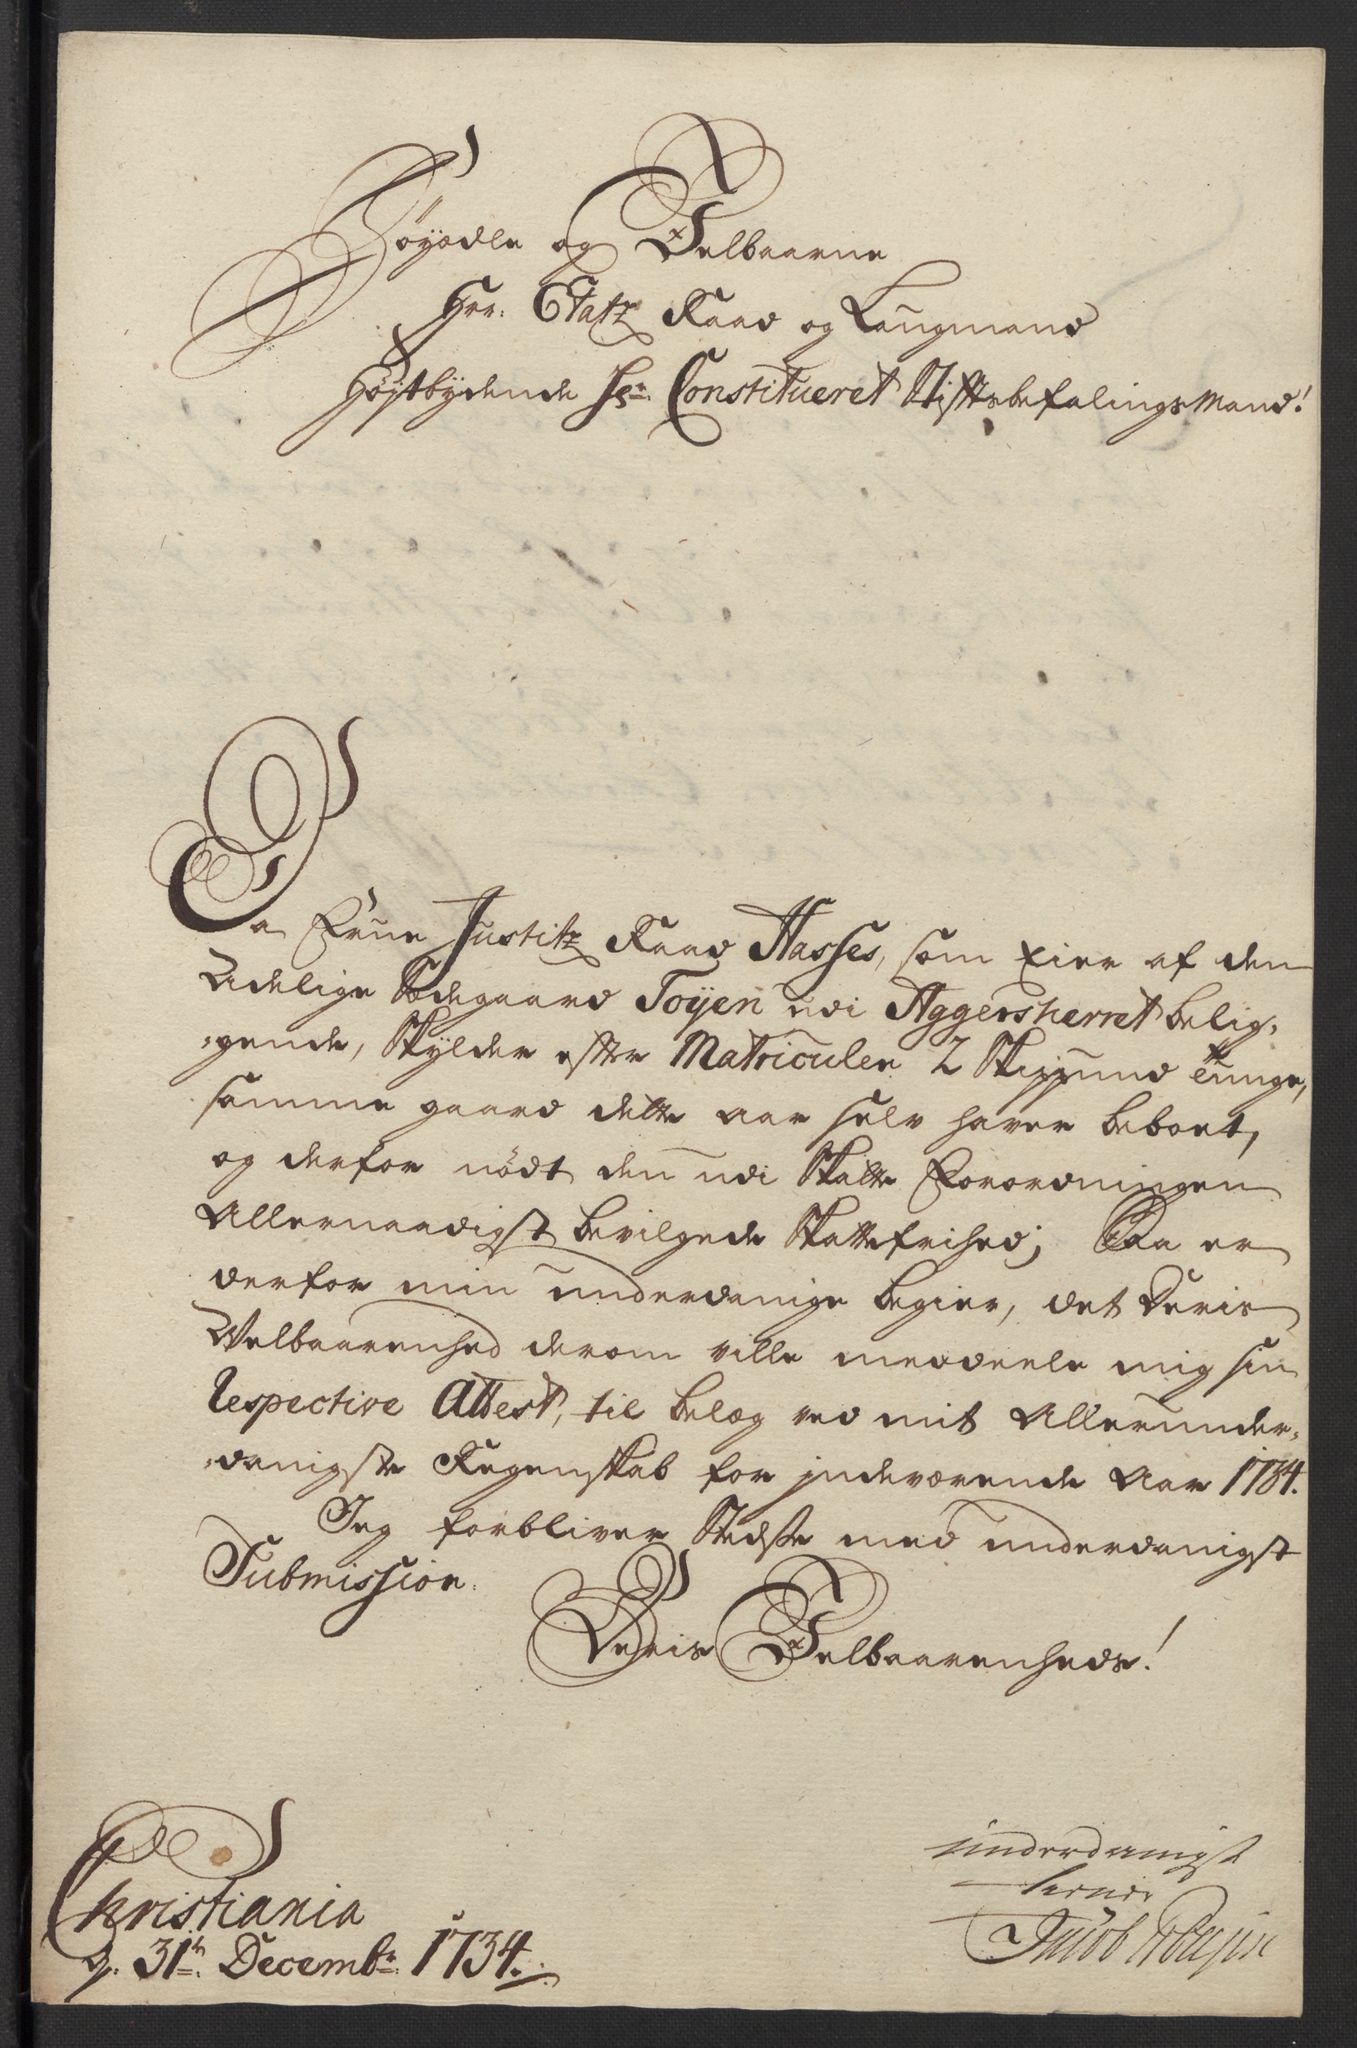 Höyædle og Velbaarne
Hrr. Etatz Raad og Laugmand
Høystbydende Hr. Constitueret Stiftsbefalingsmand!
Da Frue Justitz Raad Hasses, som Eier af den
Adelige Sædegaard Toÿen udi Aggersherret belig-
-gende, Skÿlder efter Matriculen 2 Skippund tunge,
samme gaard dette aar selv haver beboet,
og derfor nödt den udi Skatte Forordningen
Allernaadigst bevilgede Skattefrihed; Saa er
derfor min underdanige begier, det Deris
Welbaarenhed derom ville meddeele mig sin
Respective Attest, til belæg ved mit Allerunder-
-danigste Regenskab for indeværende Aar 1734.
Jeg forbliver stedse med underdanigst
Submission.
Deris Velbaarenheds!
Christiania
d. 31te Decembr. 1734.
underdanigst
tiener
Jacob